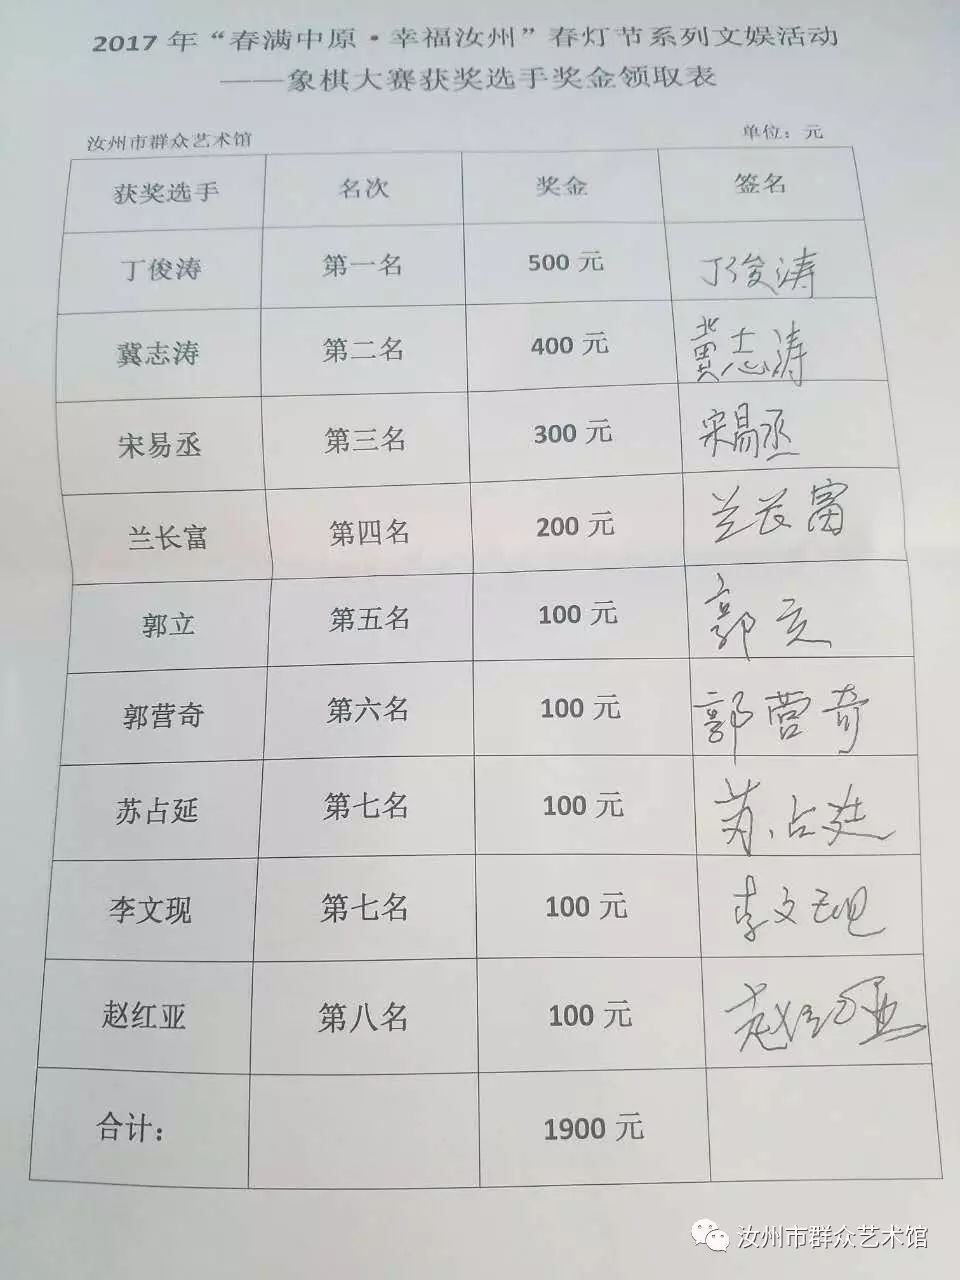 2017年“春满中原·幸福汝州”春灯节系列文娱活动
——象棋大赛获奖选手奖金领取表
汝州市群众艺术馆 单位：元
获奖选手 名次 奖金 签名
丁俊涛 第一名 500元 丁俊涛
冀志涛 第二名 400元 冀志涛
宋易丞 第三名 300元 宋易丞
兰长富 第四名 200元 兰长富
郭立 第五名 100元 郭立
郭营奇 第六名 100元 郭营奇
苏占延 第七名 100元 苏占延
李文现 第七名 100元 李文现
赵红亚 第八名 100元 赵红亚
合计： 1900元
汝州市群众艺术馆